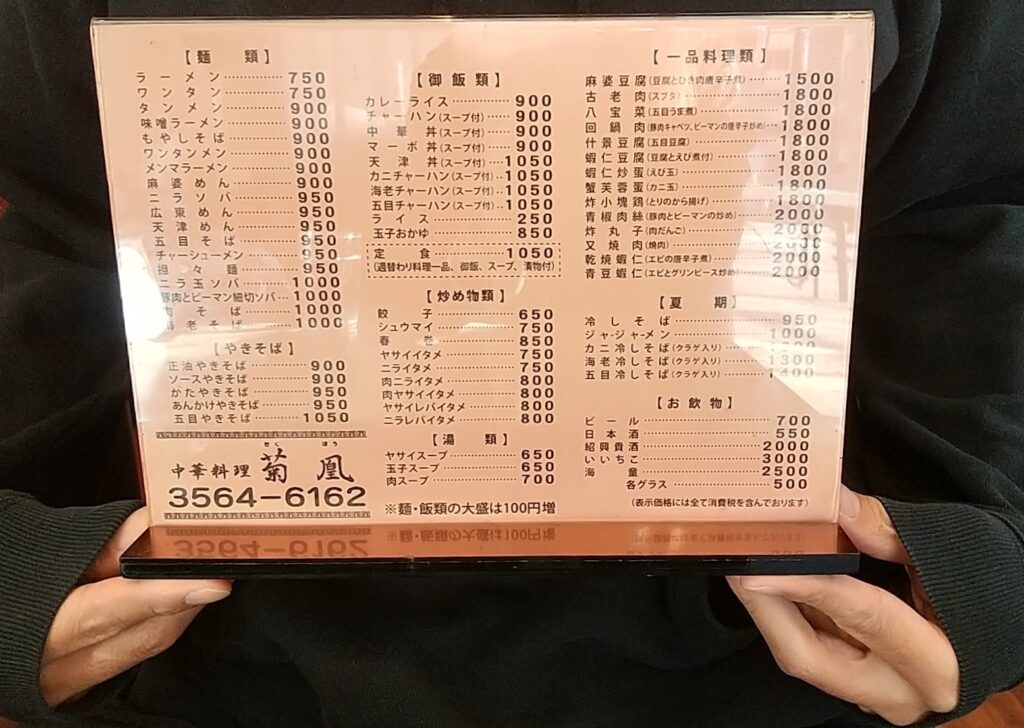 【麺類】
ラーメン 750
ワンタン 750
タンメン 900
味噌ラーメン 900
もやしそば 900
ワンタンメン 900
メンマラーメン 900
麻婆めん 900
ニラソバ 950
広東めん 950
天津めん 950
五目そば 950
チャーシューメン 950
担々麺 950
ニラ玉ソバ 1000
豚肉とピーマン細切ソバ 1000
肉そば 1000
海老そば 1000
【やきそば】
正油やきそば 900
ソースやきそば 900
かたやきそば 950
あんかけやきそば 950
五目やきそば 1050
きくほう
中華料理 菊凰
3564-6162
【御飯類】
カレーライス 900
チャーハン(スープ付) 900
中華丼(スープ付) 900
マーボ丼(スープ付) 900
天津丼(スープ付) 1050
カニチャーハン(スープ付) 1050
海老チャーハン(スープ付) 1050
五目チャーハン(スープ付) 1050
ライス 250
玉子おかゆ 850
定食 1050
(週替わり料理一品、御飯、スープ、漬物付)
【炒め物類】
餃子 650
シュウマイ 750
春巻 850
ヤサイイタメ 750
ニライタメ 750
肉ニライタメ 800
肉ヤサイイタメ 800
ヤサイレバイタメ 800
ニラレバイタメ 800
【湯類】
ヤサイスープ 650
玉子スープ 650
肉スープ 700
※麺・飯類の大盛は100円増
【一品料理類】
麻婆豆腐(豆腐とひき肉唐辛子煮) 1500
古老肉(スブタ) 1800
八宝菜(五目うま煮) 1800
回鍋肉(豚肉キャベツ、ピーマンの唐辛子炒め) 1800
什景豆腐(五目豆腐) 1800
蝦仁豆腐(豆腐とえび煮付) 1800
蝦仁炒蛋(えび玉) 1800
蟹芙蓉蛋(カニ玉) 1800
炸小塊鶏(とりのから揚げ) 1800
青椒肉絲(豚肉とピーマンの炒め) 2000
炸丸子(肉だんご) 2000
叉焼肉(焼肉) 2000
乾焼蝦仁(エビの唐辛子煮) 2000
青豆蝦仁(エビとグリンピース炒め) 2000
【夏期】
冷しそば 950
ジャージャーメン 1000
カニ冷しそば(クラゲ入り)
海老冷しそば(クラゲ入り) 1300
五目冷しそば(クラゲ入り) 1400
【お飲物】
ビール 700
日本酒 550
紹興貴酒 2000
いいちこ 3000
海童 2500
各グラス 500
(表示価格には全て消費税を含んでおります)